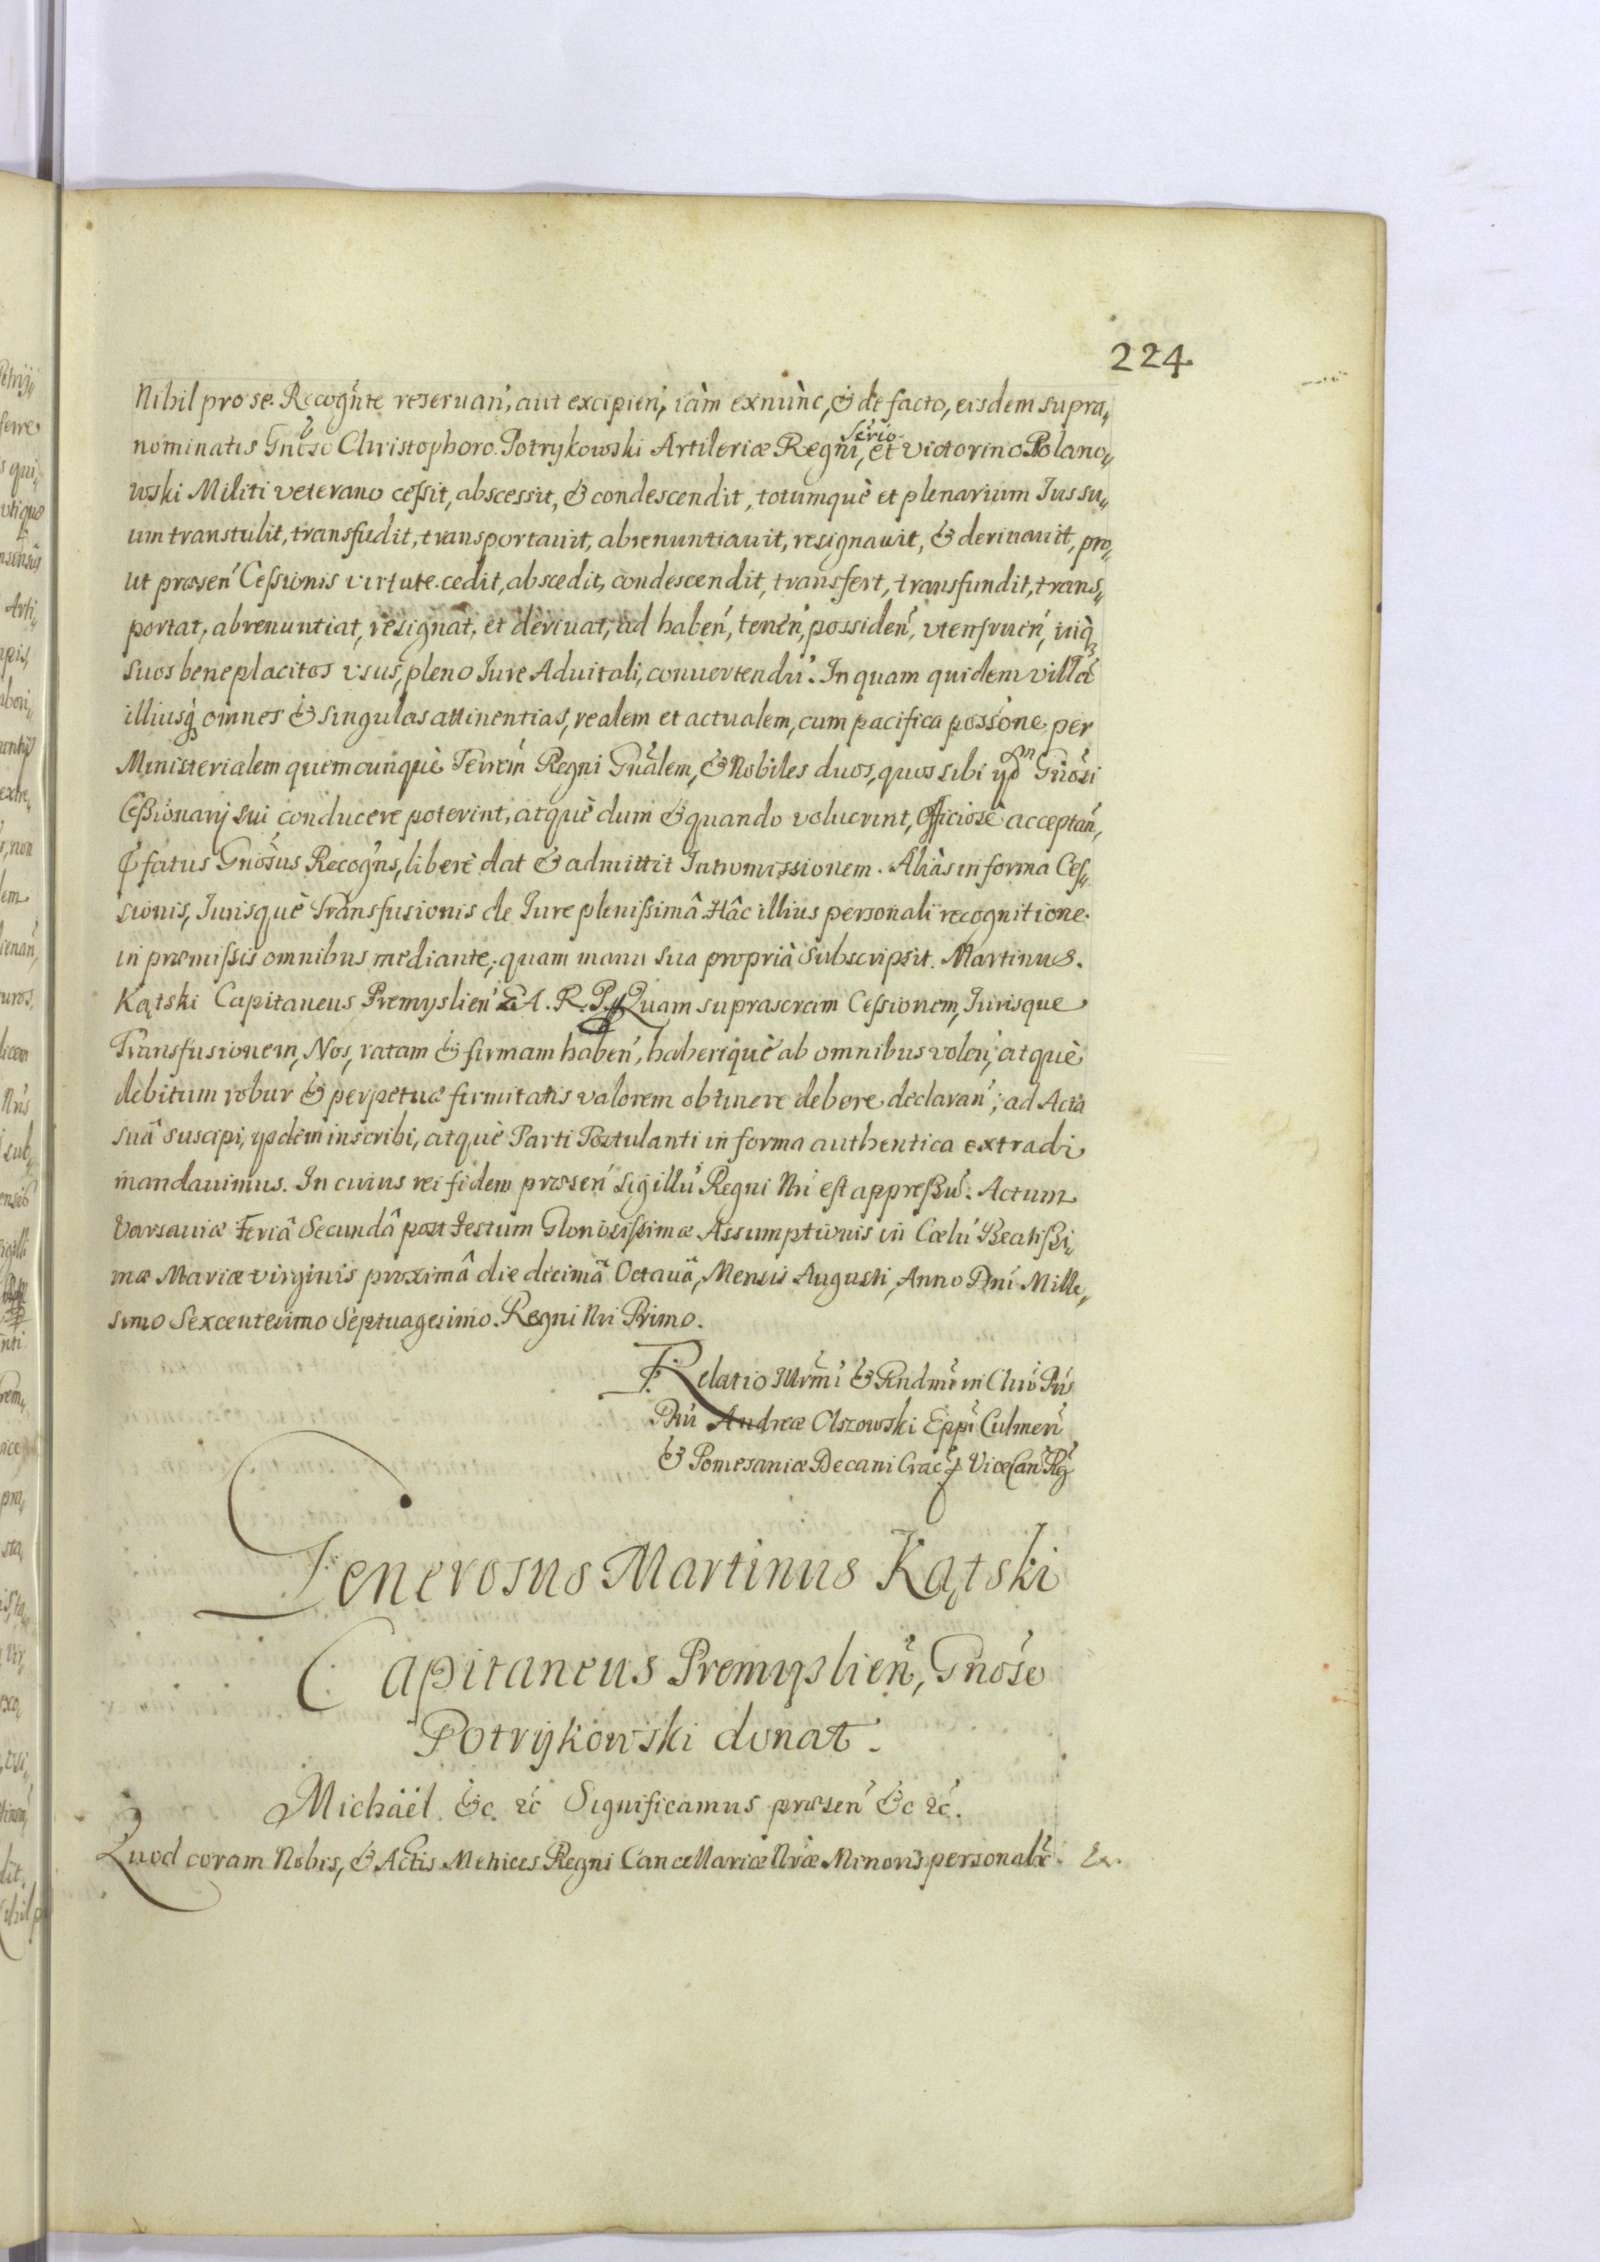 224.
Nihil pro se Recogn̄te reseruan̄, aut excipien̄, iàm exnùnc, & de facto, eisdem supra„
nominatis Gnoso Christophoro Potrykowski Artileriæ Regni, Serio et Victorino Polano„
wski Militi veterano ceſsit, abscessit, & condescendit, totumquè et plenarium Jus su„
um transtulit, transfudit, transportauit, abrenuntiauit, resignauit, & deriuauit, pro„
ut præsen̄ Ceſsionis virtute cedit, abscedit, condescendit, transfert, transfundit, trans„
portat, abrenuntiat, resignat, et dèriuat, ad haben̄, tenen̄, possiden̄, vtenfruen̄, inq̨
suos beneplacitos vsus, pleno Iure Aduitali, conuertendū. In quam quidem villā
illiusq̨ omnes & singulas attinentias, realem et actualem, cum pacifica possone per
Ministerialem quemcunquè Terrem̄ Regni Gnalem, & Nobiles duos, quos sibi ypn Gnosi
Ceſsionarij sui conducere poterint, atquè dum & quando voluerint, Officiosè acceptan̄,
Pfatus Gnosus Recogn̄s, liberè dat & admittit Intromissionem. Aliàs in forma Ceſ„
sionis, Iurisquè Transfusionis de Iure pleniſsimâ Hâc illius personali recognitione
in præmiſsis omnibus mediante, quam manu sua propriâ subscripsit. Martinus
Kątski Capitaneus Premyslien̄ G A. R. P. Quam suprascrcam Ceſsionem, Iurisque
Transfusionem, Nos, ratam & firmam haben̄, haberiquè ab omnibus volen̄, atquè
debitum robur & perpetuæ firmitatis valorem obtinere debere declaran̄; ad Acta
suā suscipi, ysdem inscribi, atquè Parti Postulanti in forma authentica extradi
mandauimus. In cuius rei fidem præsen̄ sigillū Regni Nri est appreſsū. Actum
Varsauiæ Feriâ Secundâ post Festum Glorioſiſsimæ Assumptionis in Cœlū Beatiſsi„
mæ Mariæ virginis proximâ die decimâ Octauâ, Mensis Augusti, Anno Dni Mille„
simo Sexcentesimo Septuagesimo. Regni Nri Primo.
Relatio Illrmi & Rndmi in Chro Pris
Dni Andreæ Olszowski Eppi Culmen̄
& Pomesaniæ Decani Crac P. ViceCan Rg
Generosus Martinus Kątski
Capitaneus Premyslien̄, Gnoso
Potrykowski donat.
Michäel &c ꝛc Significamus præsen̄ &c ꝛc.
Quod coram Nobis, & Actis Metrices Regni Cancellariæ Nræ Minoris personalr Ex.